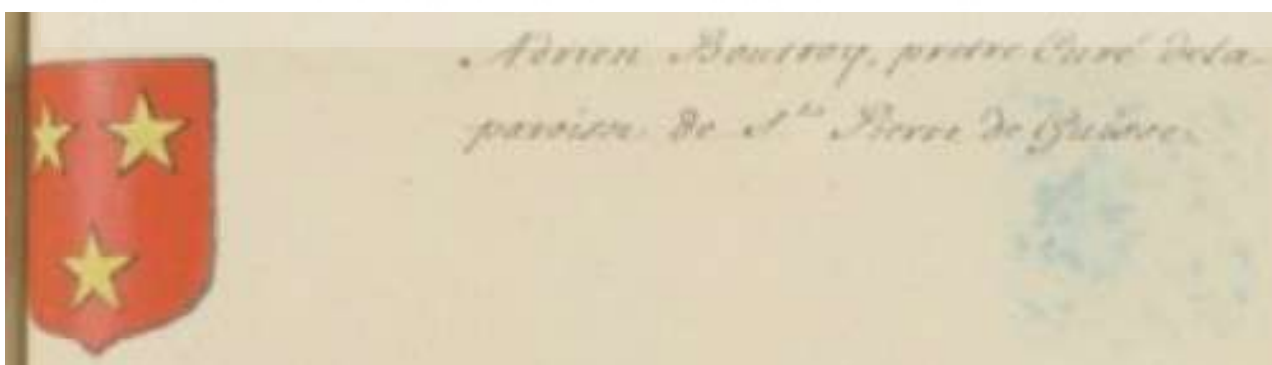 Adrien Boutroy, pretre Curé dela-
paroisse de S.te Pierre de